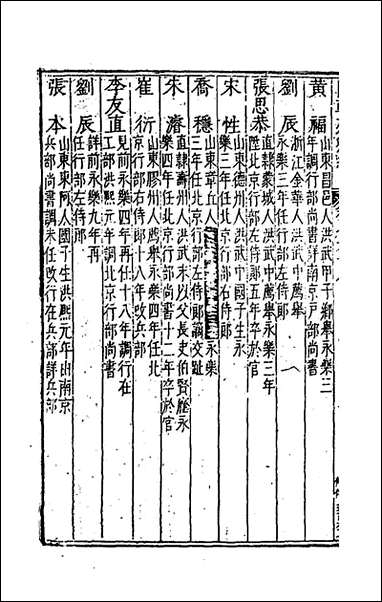 黃福
山東昌邑人洪武甲子鄉舉永樂三
年調行部尚書詳南京戶部尚書
劉辰
浙江金華人洪武中薦舉
永樂三年任行部左侍郎
張思恭
直隸蒙城人洪武中薦舉永樂三年
陞北京行部左侍郎五年卒於官
宋性
山東德州人洪武中國子生永
樂三年任北京行部右侍郎
喬穩
山東章丘人永樂
三年任北京行部左侍郎調交趾
朱濬
直隸壽州人洪武末以父長史伯賢廕永
樂四年任北京行部尚書十二年卒於官
崔衍
山東膠州人薦舉永樂四年任北
京行部右侍郎十八年改兵部
李友直
見前永樂四年再任十八年調行在
工部洪熙元年調北京行部尚書
劉辰
詳前永樂九年再
任行部左侍郎
張本
山東東阿人國子生洪熙元年由南京
兵部尚書調未任改行在兵部詳兵部